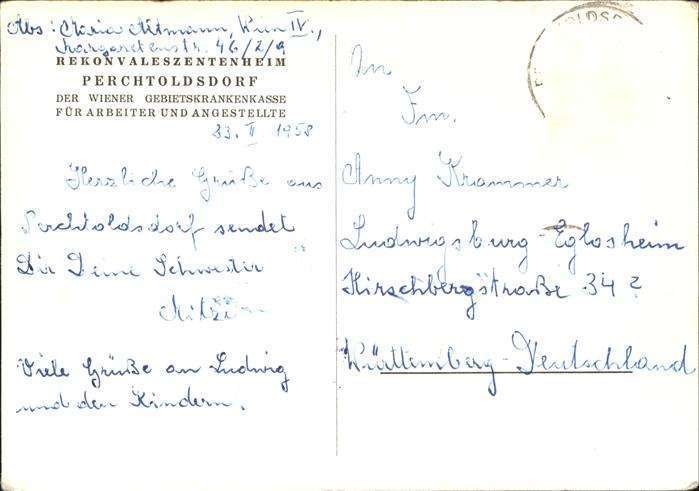 Abs: Maria Altmann, Wien IV.,
Margaretenstr. 46/2/9
REKONVALESZENTENHEIM
PERCHTOLDSDORF
DER WIENER GEBIETSKRANKENKASSE
FÜR ARBEITER UND ANGESTELLTE
23. II 1958
Herzliche Grüße aus
Perchtoldsdorf sendet
Dir Deine Schwester
Mitzi
Viele Grüße an Ludwig
und den Kindern.
An
Fm.
Anny Krammer
Ludwigsburg-Eglosheim
Kirschbergstraße 34
Württemberg-Deutschland